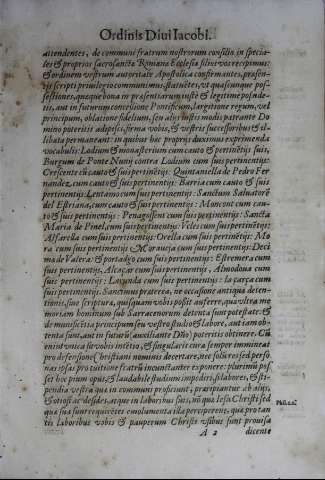 Ordinis Diui Iacobi.
attendentes, de communi fratrum nostrorum consilio, in specia-
les & proprios sacrosanctæ Romanæ Ecclesiæ filios vos recipimus:
& ordinem vestrum autoritate Apostolica confirmantes, præsen-
tis scripti priuilegio communimus, statuētes, vt quascunque pos-
sessiones, quæque bona in præsentiarum iuste & legitime posside-
tis, aut in futurum concessione Pontificum, largitione regum, vel
principum, oblatione fidelium, seu alijs iustis modis patrante Do
mino poteritis adipisci, firma vobis, & vestris successoribus & il-
libata permaneant: in quibus hæc proprijs duximus exprimenda
vocabulis: Lodium & monasterium cum cauto & pertinētijs suis,
Burgum de Ponte Nunj contra Lodium cum suis pertinentijs:
Crescente cū cauto & suis pertinētijs: Quintaniella de Pedro Fer-
nandez, cum cauto & suis pertinentijs: Barria cum cauto & suis
pertinentijs: Lentanos cum suis pertinentijs: Sanctum Saluatorē
del Estriana, cum cauto & suis pertinentijs: Moncont cum cau-
to & suis pertinentijs: Penagosen cum suis pertinentijs: Sancta
Maria de Pinel, cum suis pertinentijs: Vcles cum suis pertinētijs:
Alfarella cum suis pertinentijs: Orella cum suis pertinētijs: Mo
ra cum suis pertinentijs: Moranta cum suis pertinentijs: Deci
ma de Valera: & portadgo cum suis pertinentijs: Estremera cum
suis pertinentijs, Alcaçar cum suis pertinentijs, Almodoua cum
suis pertinentijs: Larunda cum suis pertinentijs: la çarça cum
suis pertinentijs. Sancimus præterea, ne occasione antiqua deten-
tionis, siue scriptura, quisquam vobis possit auferre, qua vltra me
moriam hominum sub Sarracenorum detenta sunt potestate: &
de munificētia principum seu vestro studio & labore, aut iam ob-
tenta sunt, aut in futurū (auxiliante Dño) poteritis obtinere. Cū
enim vna sit vobis intētio, & singularis cura semper immineat
pro defensione Christiani nominis decertare, nec solū res sed perso
nas ipsas pro tuitione fratrū incunctanter exponere: plurimū pos
set hoc pium opus, & laudabile studium impediri, si labores, & sti-
pendia vestra quæ in communi proficiunt, præripiantur ab alijs,
& otiosi ac desides, atque in laboribus suis, nō quæ Iesu Christi sed
quæ sua sunt requirētes emolumenta illa perciperent, quæ pro tan
tis laboribus vobis & pauperum Christi vsibus sunt prouisa
Phil. 2.
A 2
dicente